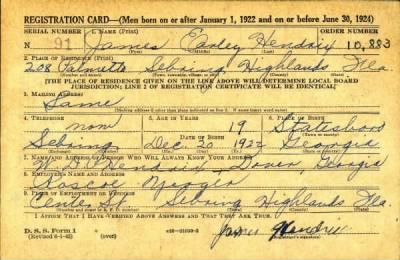 REGISTRATION CARD—(Men born on or after January 1, 1922 and on or before June 30, 1924)
SERIAL NUMBER 1. NAME (Print) ORDER NUMBER
N 91 James Earley Hendrix 10,883
(First) (Middle) (Last)
2. PLACE OF RESIDENCE (Print)
208 Palmetto Sebring Highlands Fla
[THE PLACE OF RESIDENCE GIVEN ON THE LINE ABOVE WILL DETERMINE LOCAL BOARD
JURISDICTION; LINE 2 OF REGISTRATION CERTIFICATE WILL BE IDENTICAL]
3. MAILING ADDRESS
Same
[Mailing address if other than place indicated on line 2. If same insert word same]
4. TELEPHONE 5. AGE IN YEARS 6. PLACE OF BIRTH
none 19 Statesboro
DATE OF BIRTH
Sebring Dec. 20 1922 Georgia
7. NAME AND ADDRESS OF PERSON WHO WILL ALWAYS KNOW YOUR ADDRESS
Hendrix, Dover, Georgia
8. EMPLOYER'S NAME AND ADDRESS
Roscoe
9. PLACE OF EMPLOYMENT OR BUSINESS
Center St. Sebring Highlands Fla.
I AFFIRM THAT I HAVE VERIFIED ABOVE ANSWERS AND THAT THEY ARE TRUE.
D. S. S. Form 1
(Revised 6-1-42) (over) James Hendrix
(Registrant's signature)